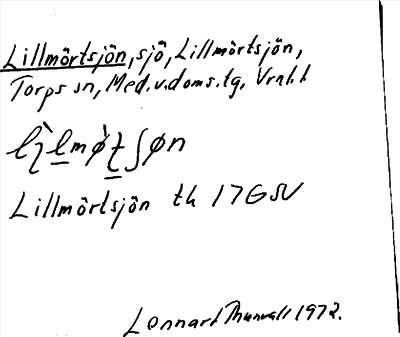 Lillmörtsjön, sjö, Lillmörtsjön,
Torps sn, Med. v. doms. tg, Vrnl. l
Lillmörtsjön tk 17G SV
Lennart Thunvall 1972.